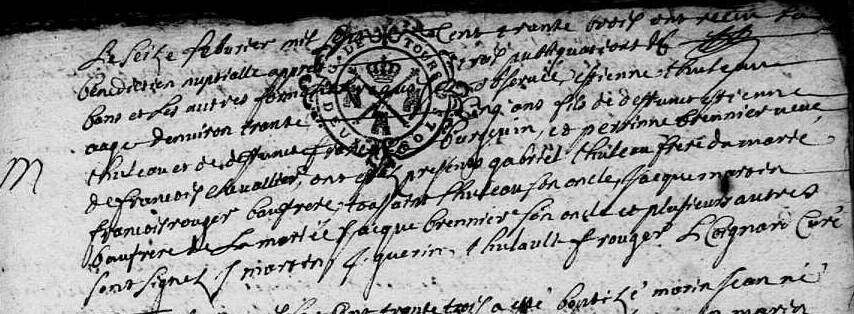 Le seize febvrier mil sept cent trente trois ont receu la
benediction nuptialle apprès trois publications de
bans et les autres formalités observée estienne thuleau
aagé denviron trente cinq ans fils de deffunct estienne
thuleau et de deffuncte bourguin, et perrinne brennier veuve
de francois chevallier, ont esté presents gabriel thuleau frere du marié
francois rouger baufrere, toussaint thuleau son oncle, jacque martin
baufrere de la mariée jacque brennier son oncle et plusieurs autres
sont signet J martin J. guerin, thulault f rouger L Coignard Curé
M
trente trois a esté baptisé marin jean né